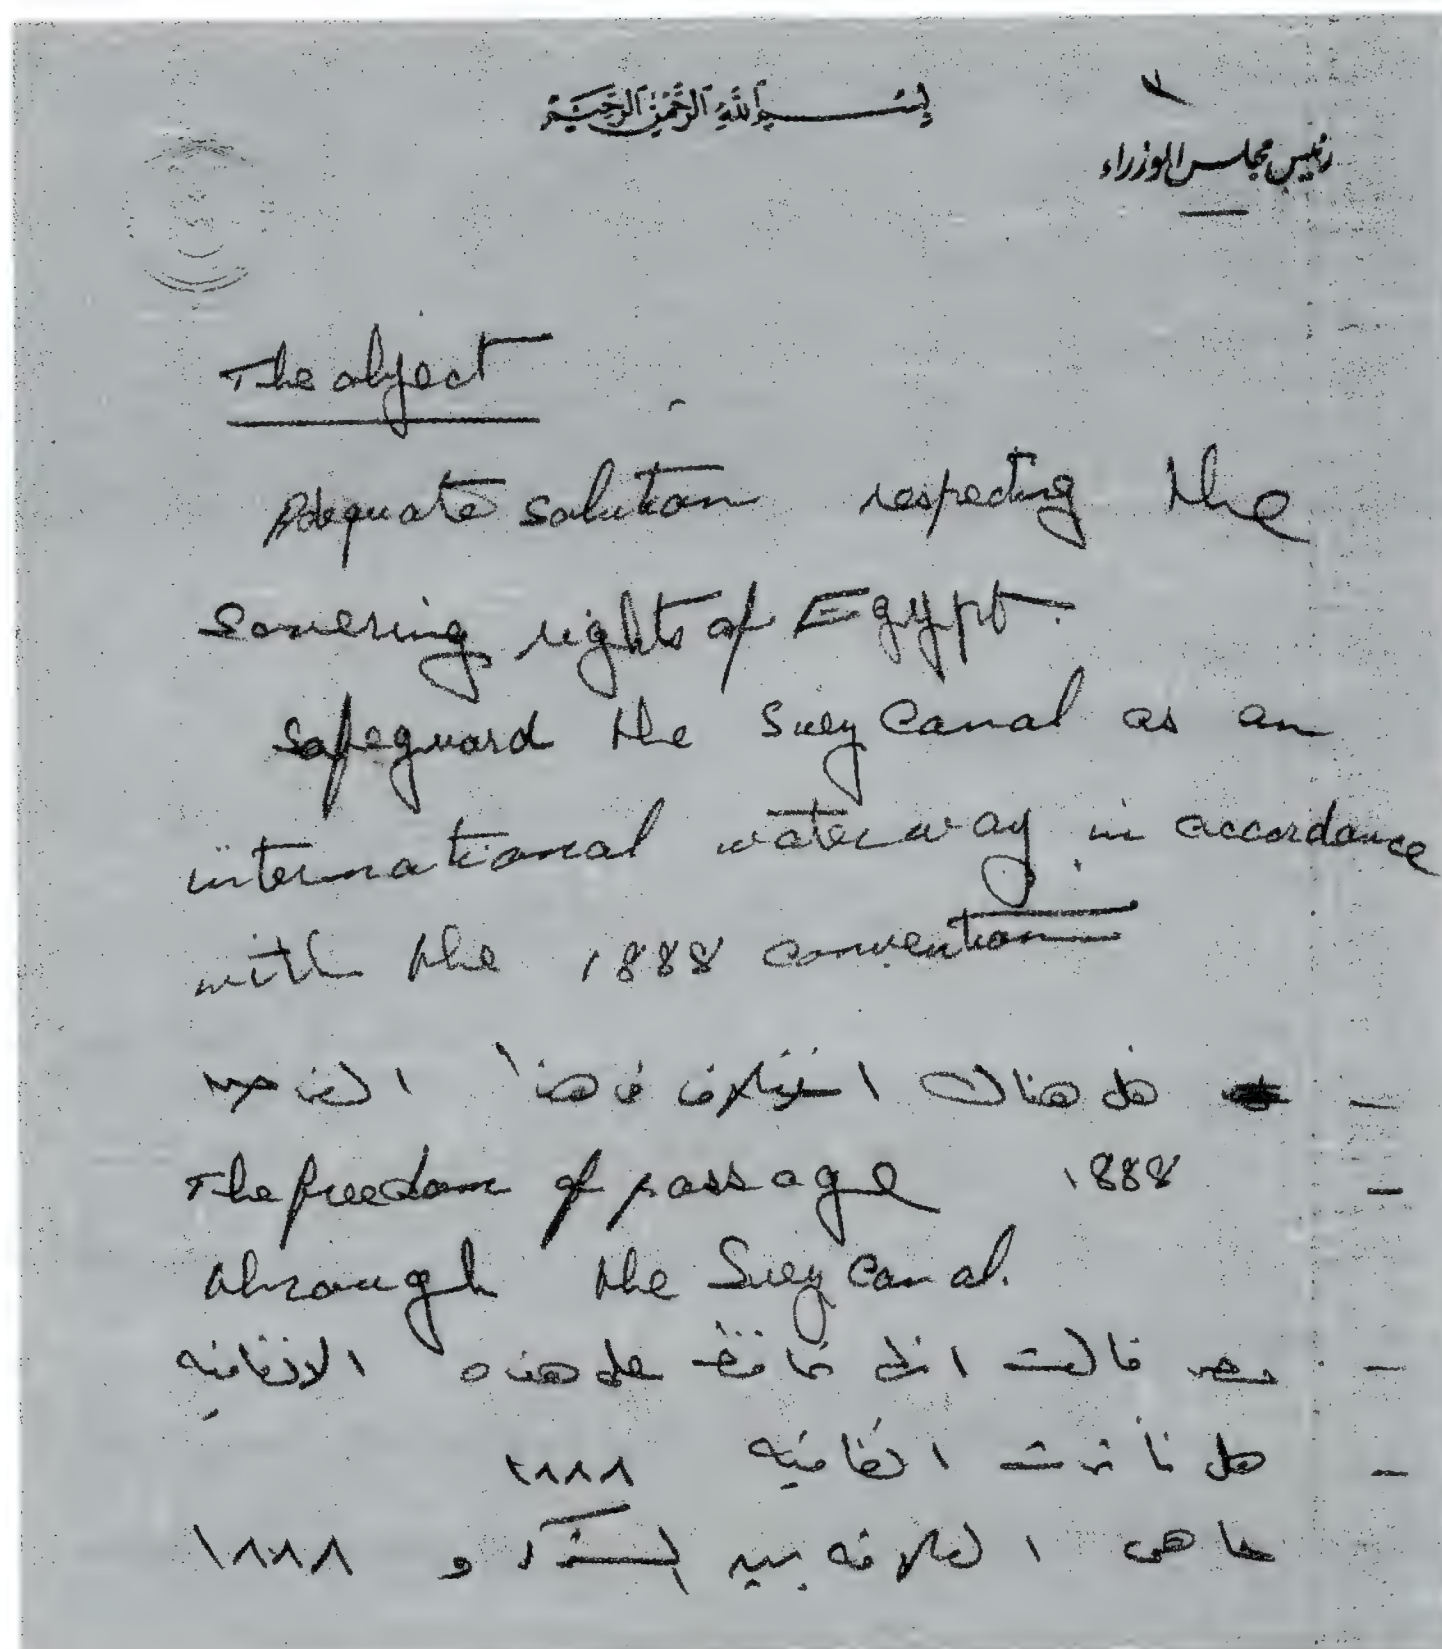 بسم الله الرحمن الرحيم
رئيس مجلس الوزراء
The object
Adequate solution respecting the
sovering rights of Egypt.
safeguard the Suez Canal as an
international waterway in accordance
with the 1888 convention
- هل هناك اختلاف فى هذا الغرض
- 1888 The freedom of passage
through the Suez Canal.
- مصر قالت انى احافظ على هذه الاتفاقيه
- هل تأثرت اتفاقيه ١٨٨٨
ما هى العلاقه بين الشركه و ١٨٨٨